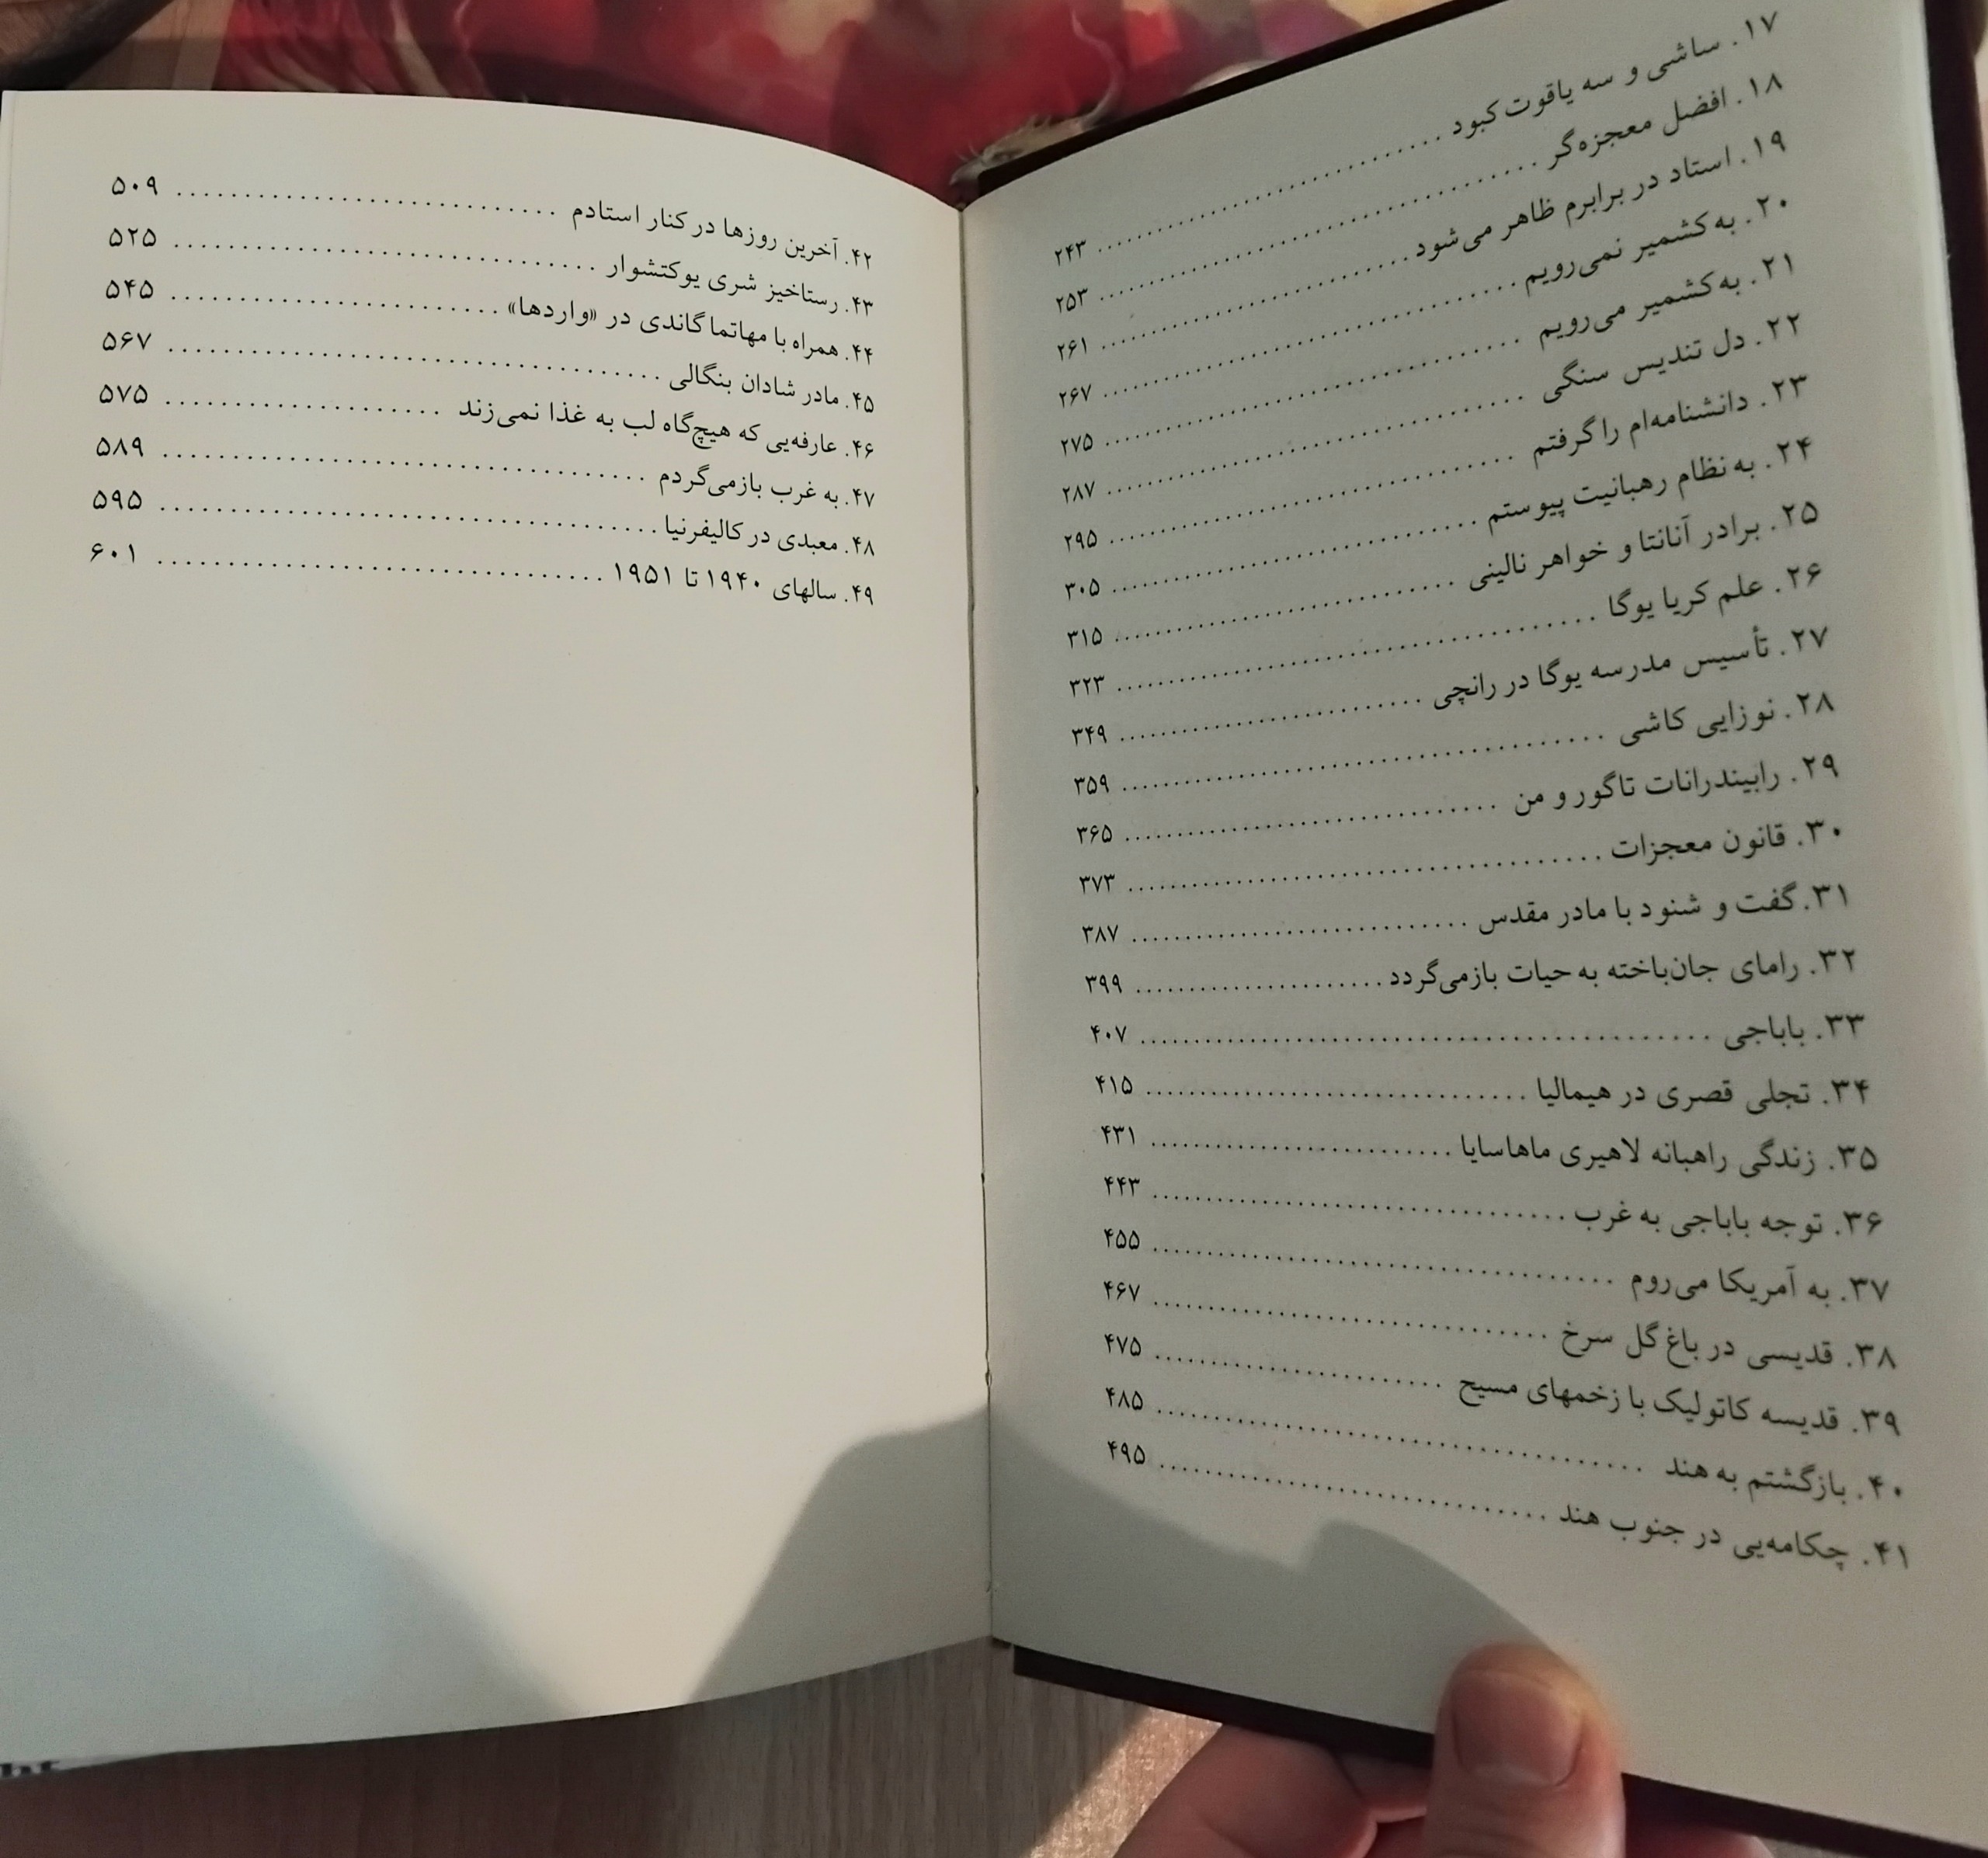 ۱۷. ساشی و سه یاقوت کبود ........ ۲۴۳
۱۸. افضل معجزه‌گر ........ ۲۵۳
۱۹. استاد در برابرم ظاهر می‌شود ........ ۲۶۱
۲۰. به کشمیر نمی‌رویم ........ ۲۶۷
۲۱. به کشمیر می‌رویم ........ ۲۷۵
۲۲. دل تندیس سنگی ........ ۲۸۷
۲۳. دانشنامه‌ام را گرفتم ........ ۲۹۵
۲۴. به نظام رهبانیت پیوستم ........ ۳۰۵
۲۵. برادر آنانتا و خواهر نالینی ........ ۳۱۵
۲۶. علم کریا یوگا ........ ۳۲۳
۲۷. تأسیس مدرسه یوگا در رانچی ........ ۳۴۹
۲۸. نوزایی کاشی ........ ۳۵۹
۲۹. رابیندرانات تاگور و من ........ ۳۶۵
۳۰. قانون معجزات ........ ۳۷۳
۳۱. گفت و شنود با مادر مقدس ........ ۳۸۷
۳۲. رامای جان‌باخته به حیات بازمی‌گردد ........ ۳۹۹
۳۳. باباجی ........ ۴۰۷
۳۴. تجلی قصری در هیمالیا ........ ۴۱۵
۳۵. زندگی راهبانه لاهیری ماهاسایا ........ ۴۳۱
۳۶. توجه باباجی به غرب ........ ۴۴۳
۳۷. به آمریکا می‌روم ........ ۴۵۵
۳۸. قدیسی در باغ گل سرخ ........ ۴۶۷
۳۹. قدیسه کاتولیک با زخمهای مسیح ........ ۴۷۵
۴۰. بازگشتم به هند ........ ۴۸۵
۴۱. چکامه‌یی در جنوب هند ........ ۴۹۵
۴۲. آخرین روزها در کنار استادم ........ ۵۰۹
۴۳. رستاخیز شری یوکتشوار ........ ۵۲۵
۴۴. همراه با مهاتما گاندی در «واردها» ........ ۵۴۵
۴۵. مادر شادان بنگالی ........ ۵۶۷
۴۶. عارفه‌یی که هیچ‌گاه لب به غذا نمی‌زند ........ ۵۷۵
۴۷. به غرب بازمی‌گردم ........ ۵۸۹
۴۸. معبدی در کالیفرنیا ........ ۵۹۵
۴۹. سالهای ۱۹۴۰ تا ۱۹۵۱ ........ ۶۰۱